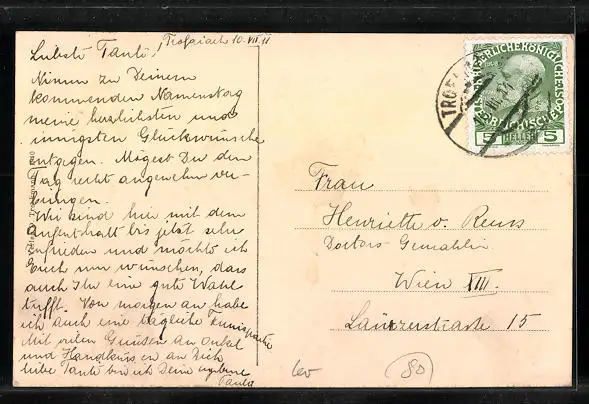 Trofaiach 10.VII.11
Liebste Tante!
Nimm zu Deinem
kommenden Namenstag
meine herzlichsten und
innigsten Glückwünsche
entgegen. Mögest Du den
Tag recht angenehm ver-
bringen.
Wir sind hier mit dem
Aufenthalt bis jetzt sehr
zufrieden und möchte ich
Euch nur wünschen, dass
auch Ihr eine gute Wahl
trifft. Von morgen an habe
ich auch eine tägliche Tennispartie
Mit vielen Grüssen an Onkel
und Handküssen an Dich
liebe Tante bin ich Deine
Paula
TROFA
5 HELLER 5
Frau
Henriette v. Reuss
Doctors-Gemahlin
Wien XIII.
Lainzerstrasse 15
80